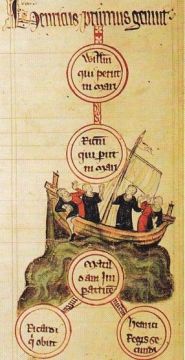 Henricus primus genuit
Willm
qui periit
in mari
Ricm
qui periit
in mari
Matil
dam im
Ricardi
q obiit
Henrici
Regis se
cundi